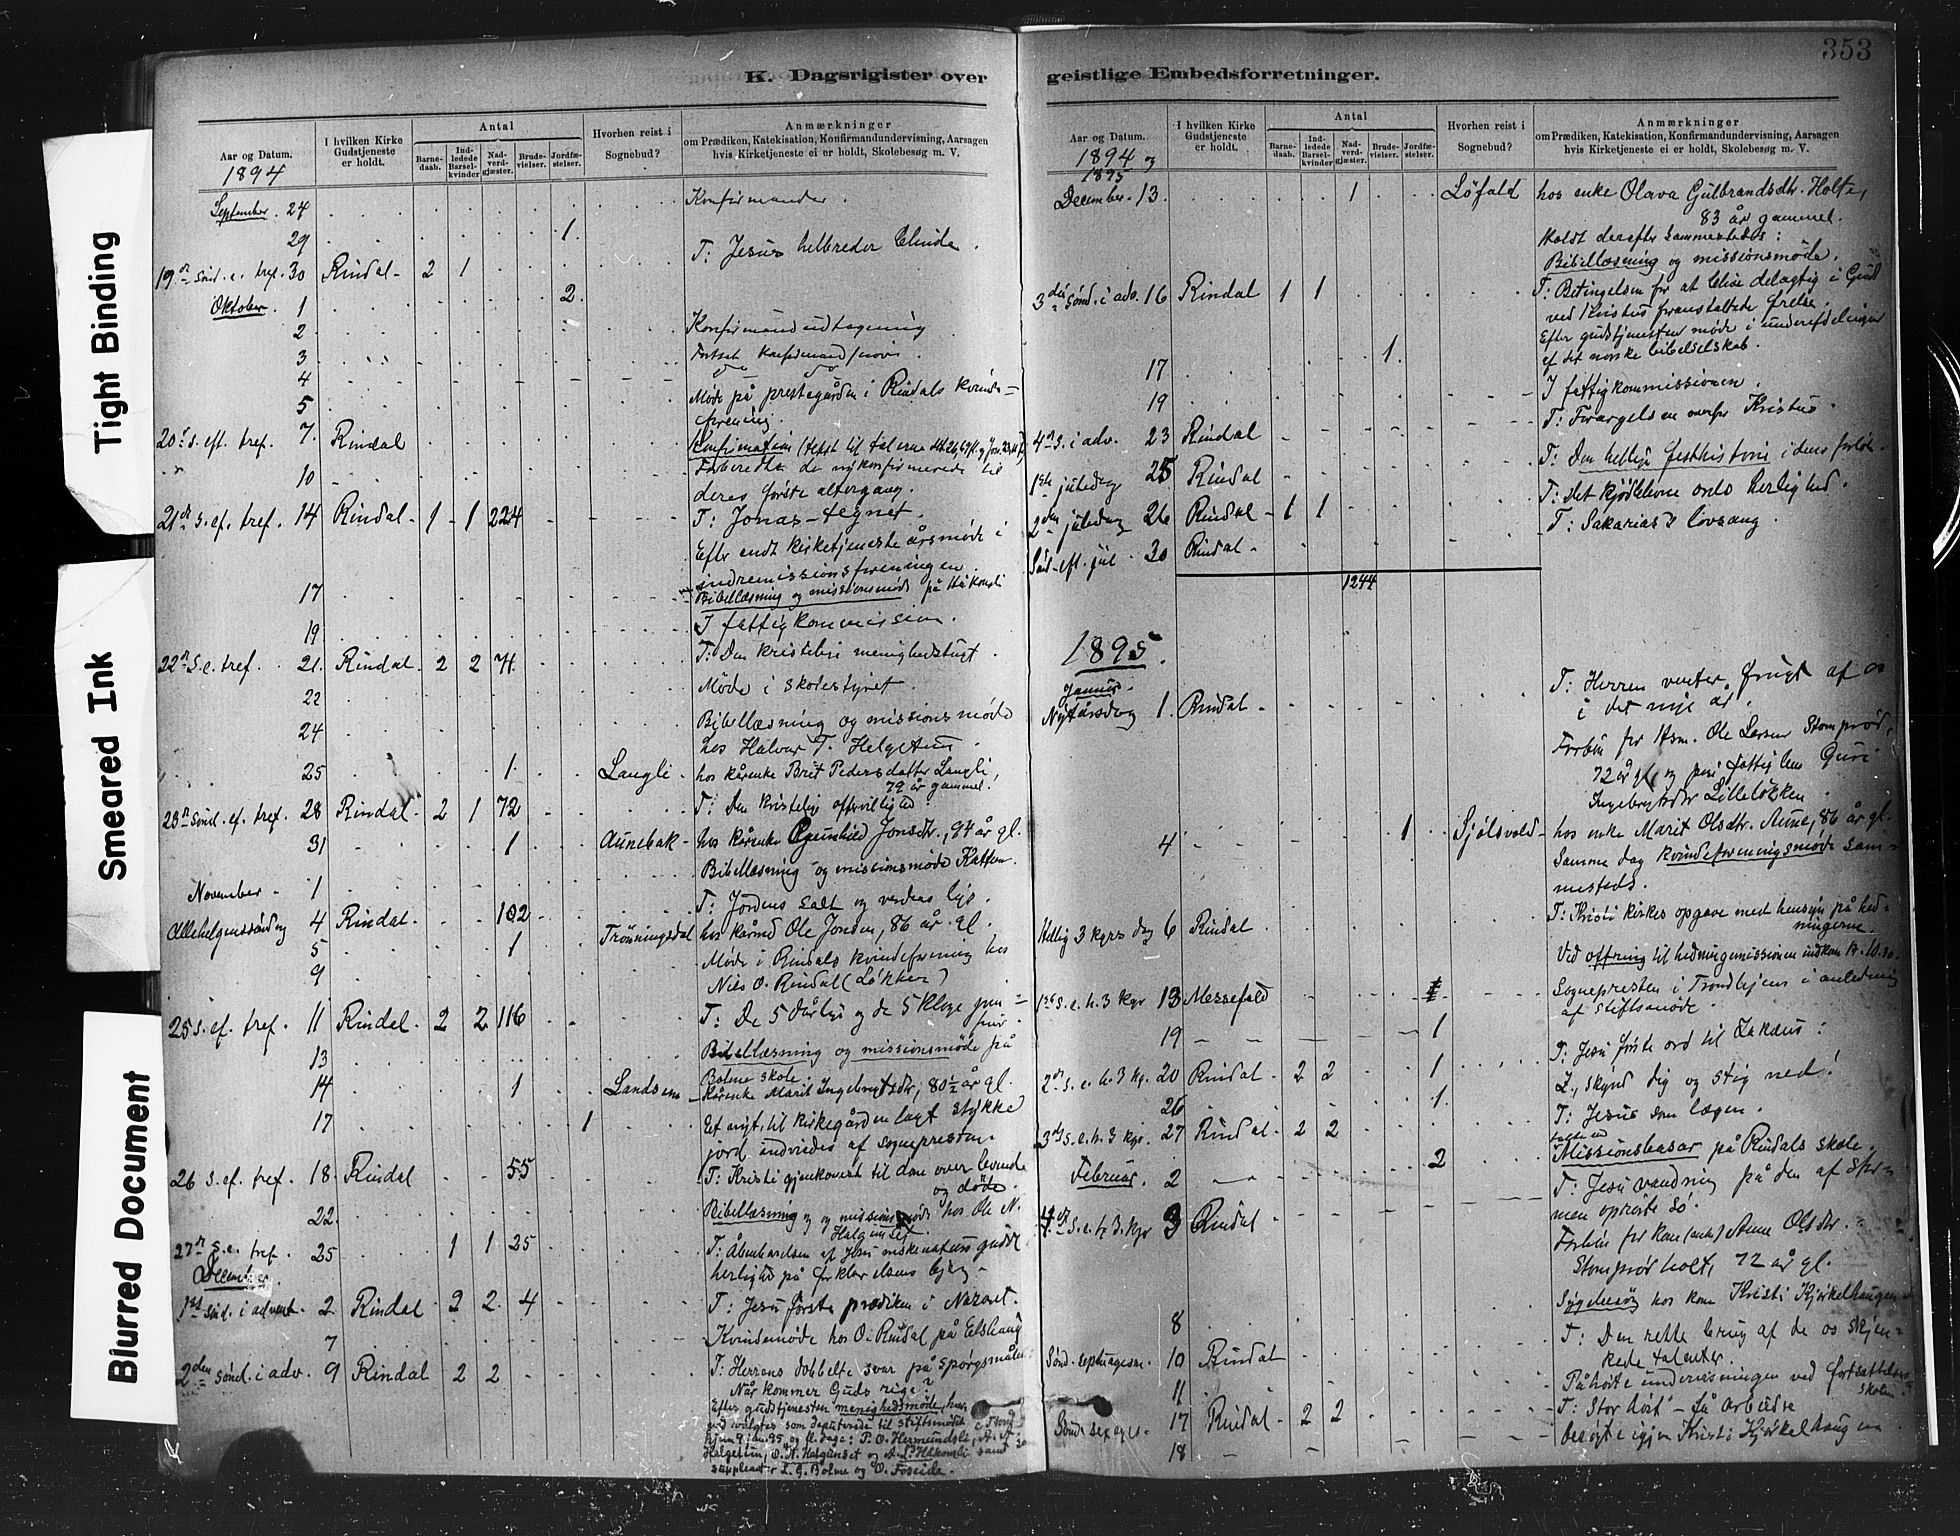 353
K. Dagsrigister over
geistlige Embedsforretninger.
Tight Binding
Smeared Ink
Blurred Document
Aar og Datum.
1894
I hvilken Kirke Gudstjeneste er holdt.
Antal
Barnedaab.
Indledede Barselkvinder
Nadverdgjæster.
Brudevielser.
Jordfæstelser.
Hvorhen reist i Sognebud?
Anmærkninger
om Prædiken, Katekisation, Konfirmandundervisning, Aarsagen
hvis Kirketjeneste ei er holdt, Skolebesøg m. V.
September 24 Konfirmander.
29 1
T: Jesus helbreder blinde.
19de sønd. e. tref. 30 Rindal 2 1
Oktober 1 2
2 Konfirmandudtagning
3
4
5 Møde på prestegården i Rindals kvinde-
forening.
20 s. eft. tref. 7. Rindal Confirmation
10 Forberedte de nykonfirmerede til
deres første altergang.
21de s. ef. tref. 14 Rindal 1 1 224 T: Jonas-tegnet.
Efter endt kirketjeneste årsmøde i
indremissionsforeningen
17 Bibellæsning og missionsmøde på
19 I fattigkommission.
22de s. e. tref. 21. Rindal 2 2 71 T: Den kristelige menighedstugt.
22 Møde i skolestyret.
24 Bibellæsning og missionsmøde
hos Halvar T. Helgetun
25 1. Langli hos kårenke Brit Pedersdatter Langli,
79 år gammel.
23de sønd. ef. tref. 28 Rindal 2 1 72 T: Den kristelig offervillighed
31 1 Aunebak hos kårenke Gunhild Jonsdtr., 94 år gl.
November 1 Bibellæsning og missionsmøde
T: Jordens salt og verdens lys.
Allehelgenssøndag 4 Rindal 102
5 1 Trønningsdal hos kårmd Ole Jonsen, 86 år gl.
9 Møde i Rindals kvindeforening hos
Nils O. Rindal (Løkken)
25 s. ef. tref. 11 Rindal 2 2 116 T: De 5 dårlige og de 5 kloge jom-
fruer.
13 Bibellæsning og missionsmøde på
Bolme skole.
14 1 Kårenke Marit Ingebrigtsdtr, 80½ år gl.
17 1 Et nyt til kirkegården lagt stykke
jord indviedes af sognepresten.
26 s. ef. tref. 18. Rindal 55 T: Kristi gjenkomst til dom over levende
og døde.
22. Bibellæsning og missionsmøde hos Ole N.
Halgunset
27de s. e. tref. 25 1 1 25 T: Åbenbarelsen af Jesu
herlighed på forklarelsens bjerg.
December
1ste sønd. i advent. 2. Rindal 2 2. 4 T: Jesu første prædiken i Nazaret.
7 Kvindemøde hos O. Rindal på Elshaug
2den sønd. i adv. 9 Rindal 2 2 T: Herrens dobbelte svar på spørgsmålet:
Når kommer Guds rige?
Efter gudstjenesten menighedsmøde, hvor
ved valgtes som deputerede til stiftsmødet i Trond
hjem 9 jan. 95 og fl. dage: P. O. Hermundslie,
Halgetun, O. N. Halgunset og Håkonsli samt
suppleant: L. G. Bolme og O. Foseide.
Aar og Datum.
1894 og
1895
I hvilken Kirke Gudstjeneste er holdt.
Antal
Barnedaab.
Indledede Barselkvinder
Nadverdgjæster.
Brudevielser.
Jordfæstelser.
Hvorhen reist i Sognebud?
Anmærkninger
om Prædiken, Katekisation, Konfirmandundervisning, Aarsagen
hvis Kirketjeneste ei er holdt, Skolebesøg m. V.
December 13. 1 Løfald hos enke Olava Gulbrandsdtr. Holte,
83 år gammel.
Holdt derefter sammesteds:
Bibellæsning og missionsmøde.
3die sønd. i adv. 16 Rindal 1 1 T: Betingelsen for at blive delagtig i Guds
ved Kristus foranstaltede frelse.
Efter gudstjenesten møde i underafdelingen
af det norske bibelselskab.
17 1.
19 I fattigkommissionen.
T: Forargelsen overfor Kristus.
4de s. i adv. 23 Rindal
1ste juledag 25 Rindal T: Den hellige festhistorie i dens
2den juledag 26 Rindal 1 1 T: Det kjødblevne ords herlighed.
Sønd. eft. jul 30 Rindal T: Sakarias's lovsang.
1244
1895.
Januar.
Nytårsdag 1. Rindal T: Herren venter frugt af os
i det nye år.
Forbøn for Hsm. Ole Larsen Stomprød,
72 år gl. og pri fattiglem Guri
Ingebrigtsdtr Lilleløkken.
4 1 Sjølsvold hos enke Marit Olsdtr. Aune, 86 år gl.
Samme dag kvindeforeningsmøde sam-
mesteds.
Hellig 3 kgrs dag 6 Rindal T: Kristi kirkes opgave med hensyn på hed-
ningerne.
Ved offring til hedningemissionen indkom
1ste s. e. h. 3 kgr 13 Messefald Sognepresten i Trondhjem i anledning
af stiftsmøde.
19 1
2den s. e. h. 3 kg. 20 Rindal 2 2 1 T: Jesu første ord til Zakæus:
Z., skynd dig og stig ned!
26 1.
3die s. e. h. 3 kgr. 27 Rindal 2 2 T: Jesus som lægen.
Februar. 2 2 Missionsbasar på Rindals skole.
4de s. e. h. 3. kgr 3 Rindal T: Jesu vandring på den af stor-
men oprørte sø.
Forbøn for kone Anne Olsdtr.
Stomprørholt, 72 år gl.
8 Sygebesøg hos kone Kristi Kjørkelhaugen
Sønd. septuages. 10 Rindal T: Den rette brug af de os skjæn-
kede talenter.
11 Påhørte undervisningen ved fortsættelses-
skolen.
Sønd. sexages. 17 Rindal 2 2 T: Stor høst - få arbeidre
18 besøgte igjen Kristi Kjørkelhaugen